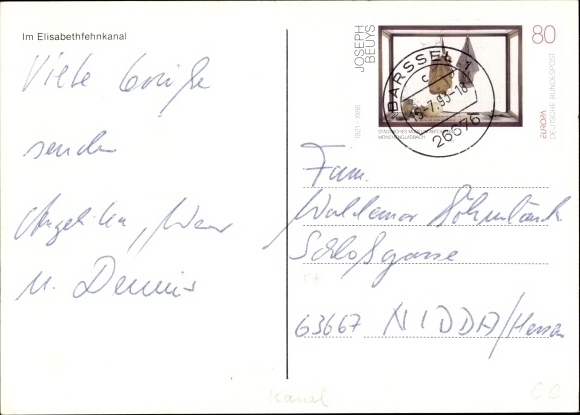 Im Elisabethfehnkanal
Viele Grüße
senden
Angelika,
u. Dennis
JOSEPH
BEUYS
1921 - 1986
80
EUROPA
DEUTSCHE BUNDESPOST
MÖNCHENGLADBACH
BARSSEL
-7.93-18
26676
Fam.
Waldemar
Schloßgasse
63667 NIDDA/Hessen
Kanal